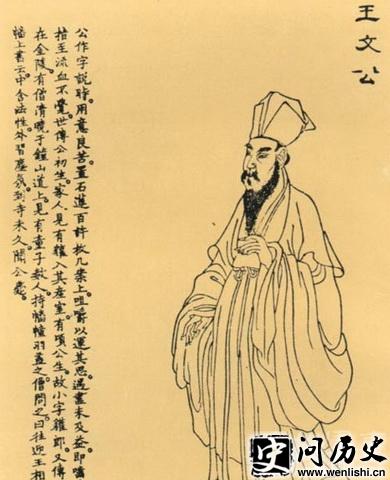 王文公
公作字說時。用意良苦。置石蓮百許枚几案上咀嚼以運其思。遇盡未及益。即嚙
指至流血不覺。世傳公初生。家人見有獾入其產室。有頃公生。故小字獾郎。又傳
在金陵有僧清曉于鐘山道上。見有童子數人。持幡幢羽蓋之。僧問之。曰往迎王相
幡上書云。中含法性。外習塵氛。到寺未久。聞公薨。
史 问历史
www.wenlishi.cn